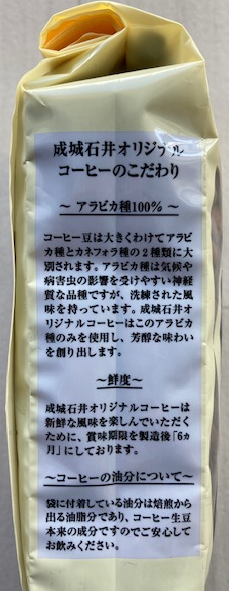 成城石井オリジナル
コーヒーのこだわり
〜 アラビカ種100% 〜
コーヒー豆は大きくわけてアラビ
カ種とカネフォラ種の2種類に大
別されます。アラビカ種は気候や
病害虫の影響を受けやすい神経
質な品種ですが、洗練された風
味を持っています。成城石井オ
リジナルコーヒーはこのアラビカ
種のみを使用し、芳醇な味わい
を創り出します。
〜鮮度〜
成城石井オリジナルコーヒーは
新鮮な風味を楽しんでいただく
ために、賞味期限を製造後「6ヵ
月」にしております。
〜コーヒーの油分について〜
袋に付着している油分は焙煎から
出る油脂分であり、コーヒー生豆
本来の成分ですのでご安心して
お飲みください。